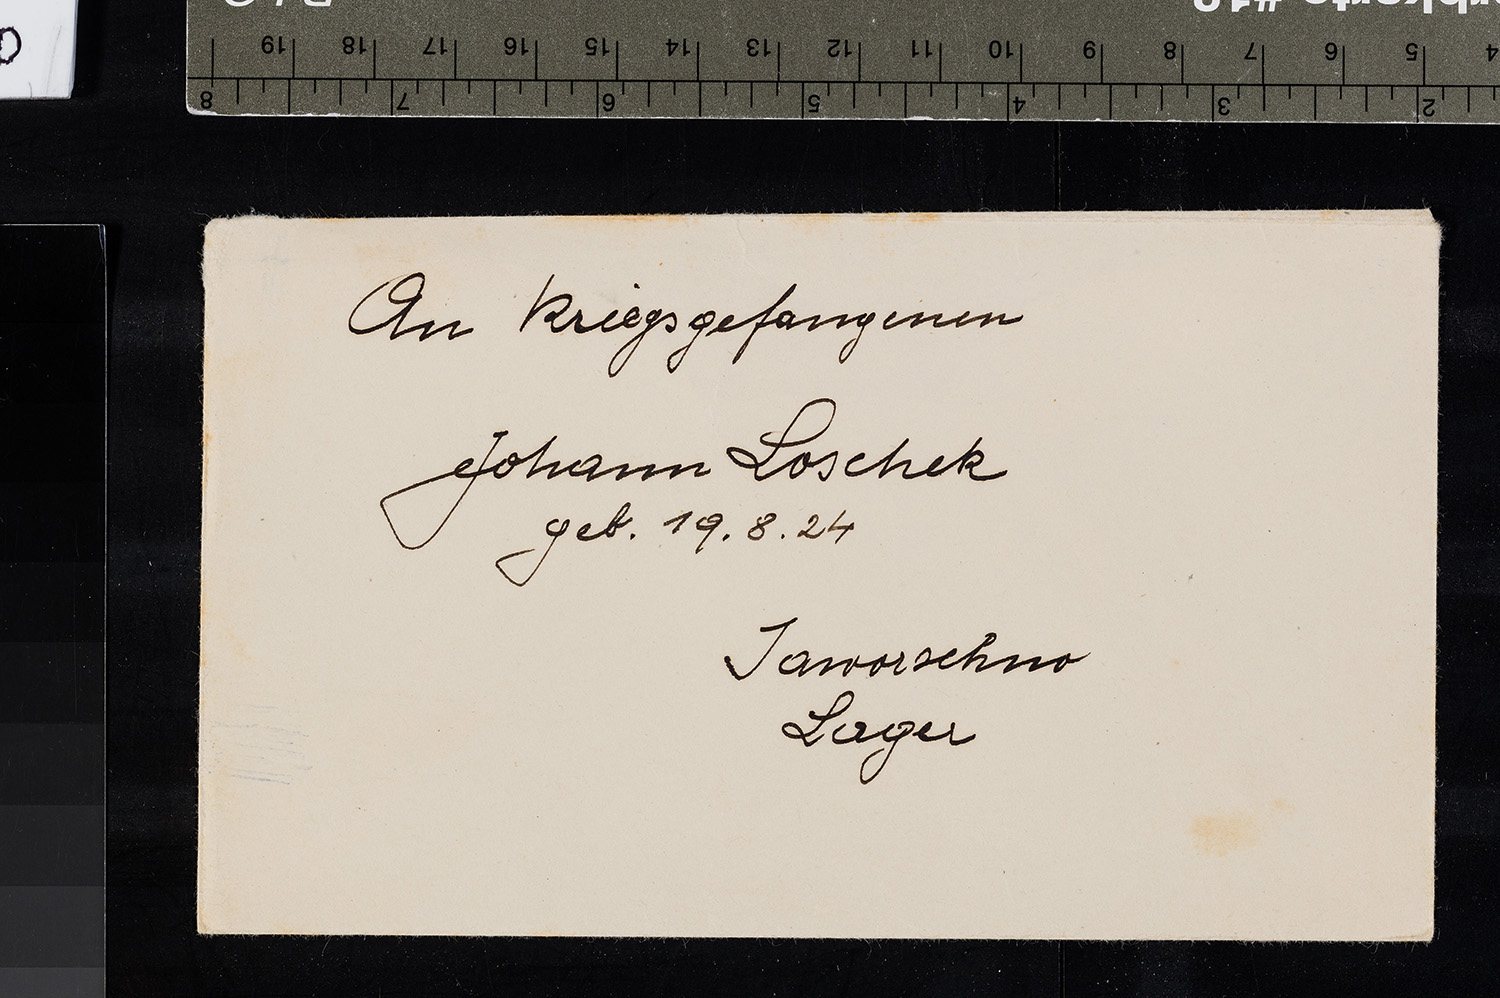 19 18 17 16 15 14 13 12 11 10 9 8 7 6 5 4
8 7 6 5 4 3 2
An Kriegsgefangenen
Johann Loschek
geb. 19.8.24
Jaworschno
Lager